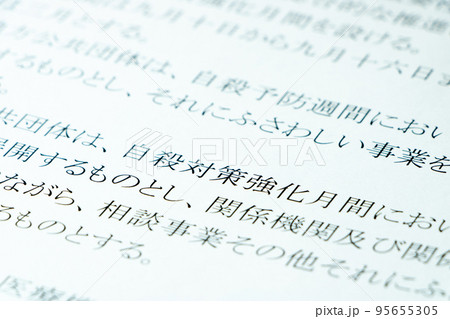 化月間を設ける。
月十日から九月十六日ま
公共団体は、自殺予防週間におい
するものとし、それにふさわしい事業を
共団体は、自殺対策強化月間におい
展開するものとし、関係機関及び関係
ながら、相談事業その他それにふ
るものとする。
医療
PIXTA
pixta.jp - 95655305